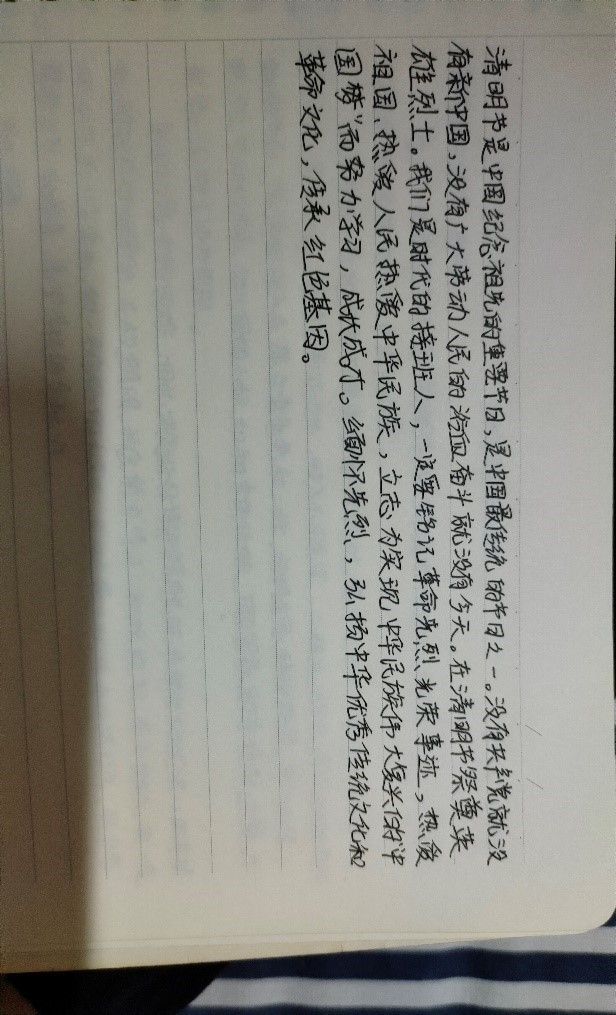 清明节是中国纪念祖先的重要节日,是中国最传统的节日之一。没有共产党就没
有新中国,没有广大劳动人民的浴血奋斗就没有今天。在清明节祭奠英
雄烈士。我们是时代的接班人,一定要铭记革命先烈光荣事迹,热爱
祖国,热爱人民热爱中华民族,立志为实现中华民族伟大复兴的中
国梦"而努力学习,成长成才。缅怀先烈,弘扬中华优秀传统文化和
革命文化,传承红色基因。